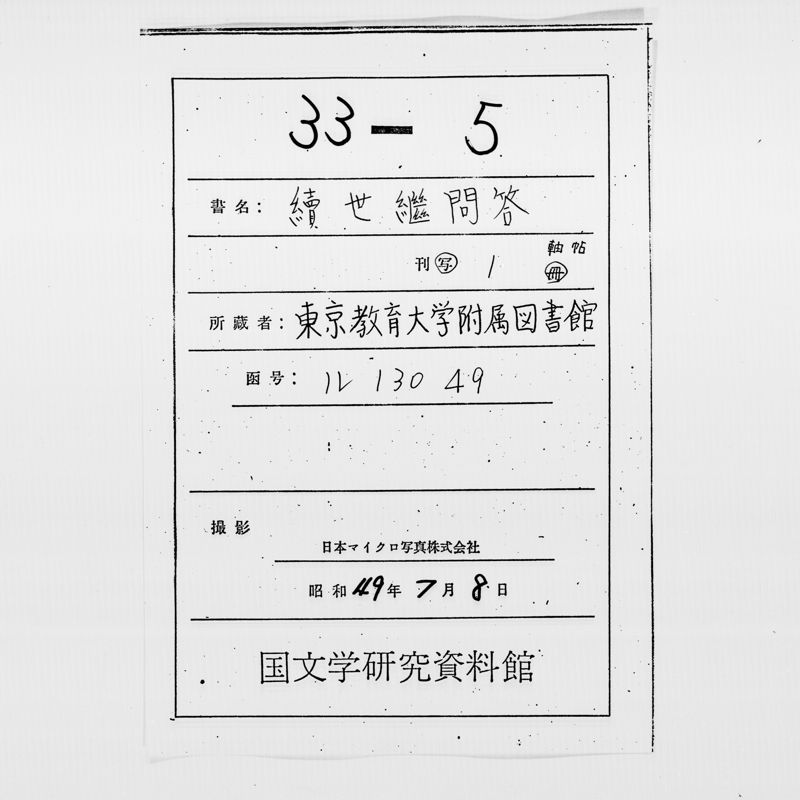 33-5
書名: 續世繼問答
軸 帖
刊 写 1 冊
所蔵者: 東京教育大学附属図書館
函号: ル130 49
撮影
日本マイクロ写真株式会社
昭和49年7月8日
国文学研究資料館